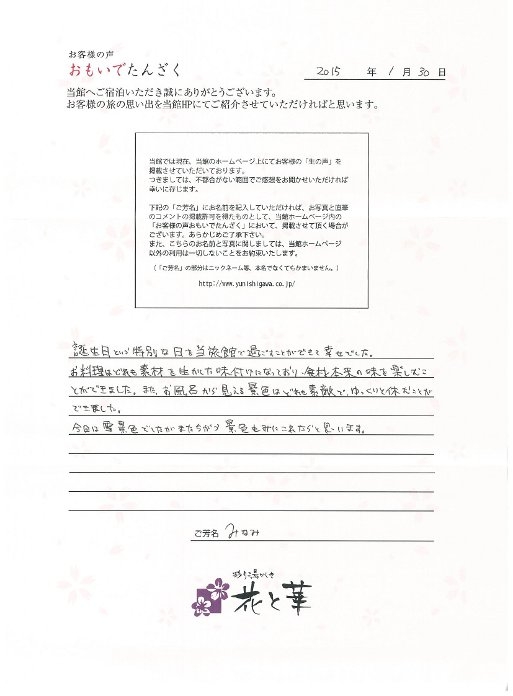 お客様の声
おもいでたんざく
2015 年 1 月 30 日
当館へご宿泊いただき誠にありがとうございます。
お客様の旅の思い出を当館HPにてご紹介させていただければと思います。
当館では現在、当館のホームページ上にてお客様の「生の声」を
掲載させていただいております。
つきましては、不都合がない範囲でご感想をお聞かせいただければ
幸いに存じます。
下記の「ご芳名」にお名前を記入していただければ、お写真と直筆
のコメントの掲載許可を得たものとして、当館ホームページ内の
「お客様の声おもいでたんざく」において、掲載させて頂く場合が
ございます。あらかじめご了承下さい。
また、こちらのお名前と写真に関しましては、当館ホームページ
以外の利用は一切しないことをお約束いたします。
（「ご芳名」の部分はニックネーム等、本名でなくてもかまいません。）
http://www.yunishigawa.co.jp/
誕生日という特別な日を当旅館で過ごすことができて幸せでした。
お料理はどれも素材を生かした味付けになっており、食材本来の味を楽しむこ
とができました。また、お風呂から見える景色はどれも素敵で、ゆっくりと休むことが
できました。
今回は雪景色でしたがまたちがう景色もみにこれたらと思います。
ご芳名 みなみ
花と華